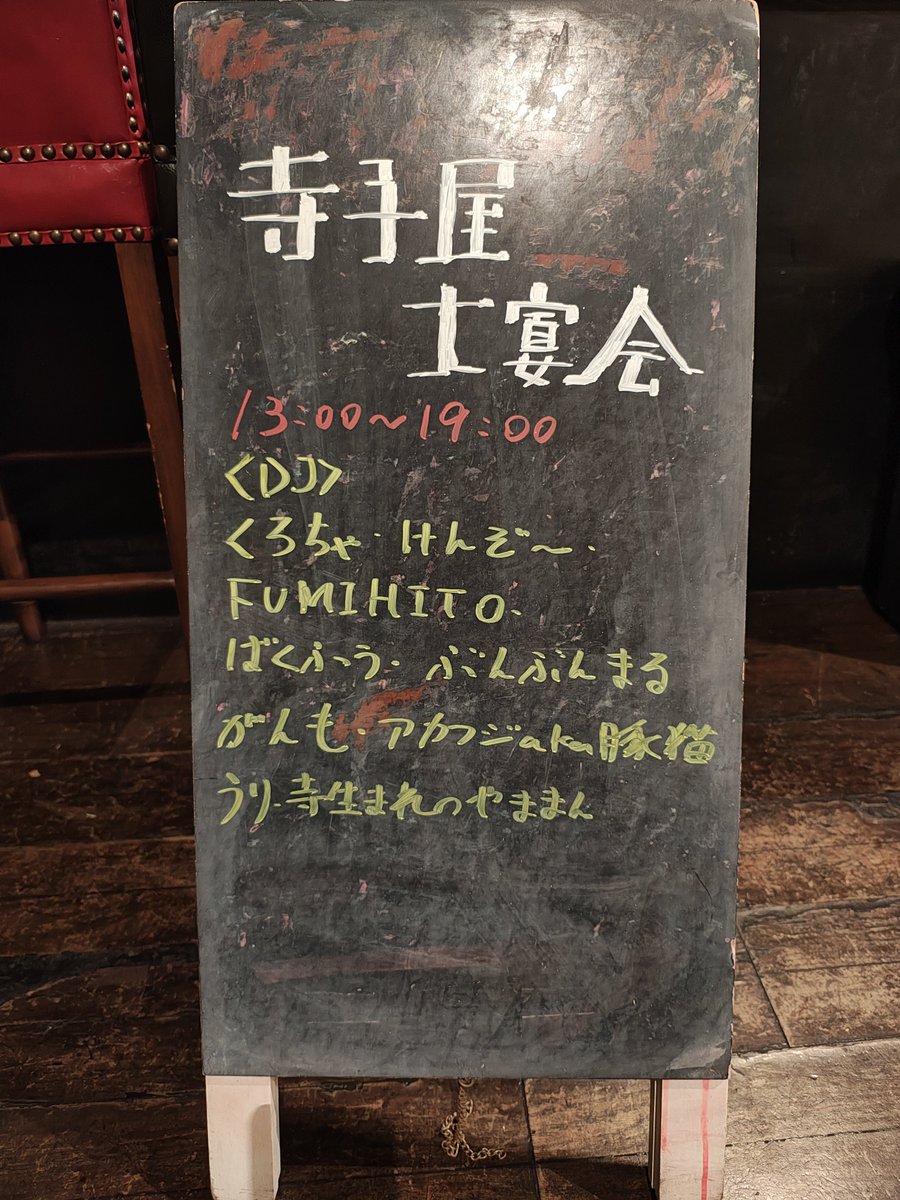 寺子屋
大宴会
13:00〜19:00
<DJ>
くろちゃ・けんぞ〜・
FUMIHITO・
ばくふう・ぶんぶんまる
がんも・アカフジaka豚猫
うり・寺生まれのやままん